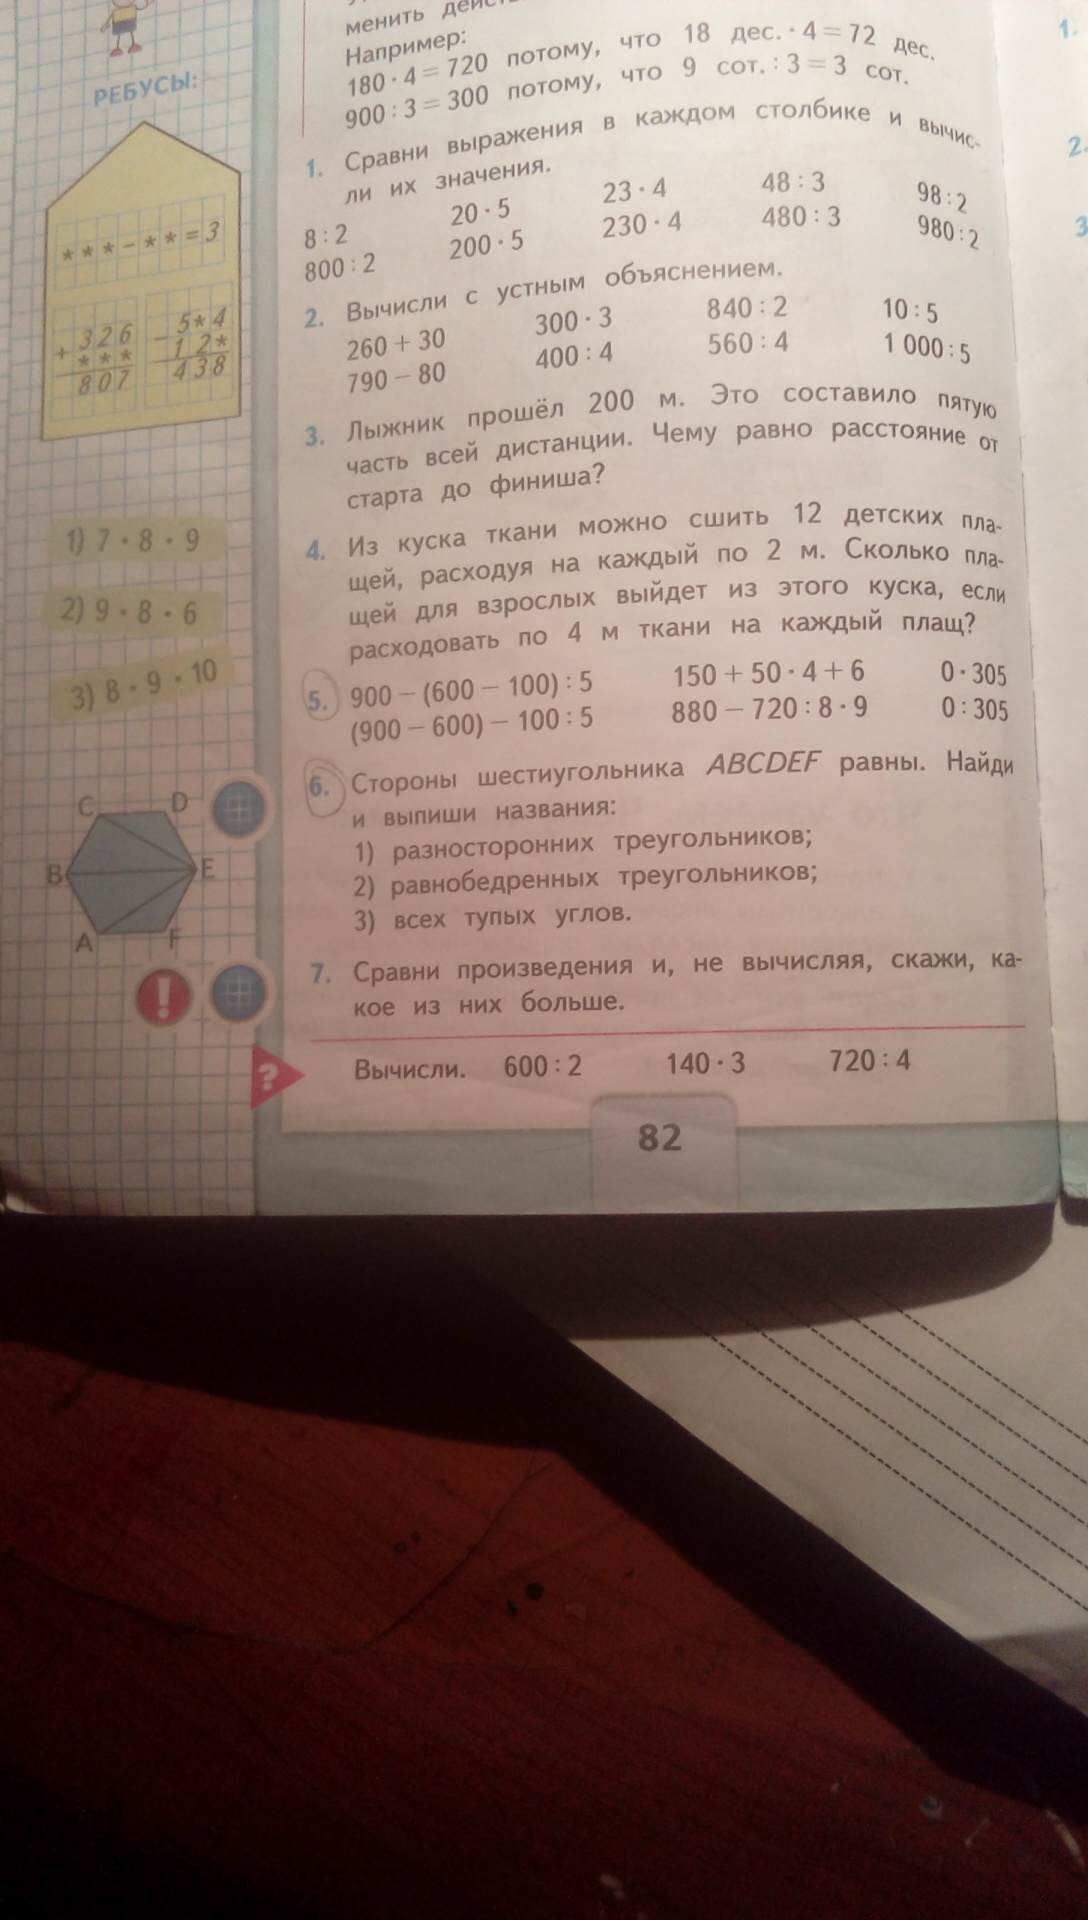 менить
Например:
180 · 4 = 720 потому, что 18 дес. · 4 = 72 дес.
900 : 3 = 300 потому, что 9 сот. : 3 = 3 сот.
1. Сравни выражения в каждом столбике и вычис-
ли их значения.
8 : 2 20 · 5 23 · 4 48 : 3 98 : 2
800 : 2 200 · 5 230 · 4 480 : 3 980 : 2
2. Вычисли с устным объяснением.
260 + 30 300 · 3 840 : 2 10 : 5
790 − 80 400 : 4 560 : 4 1 000 : 5
3. Лыжник прошёл 200 м. Это составило пятую
часть всей дистанции. Чему равно расстояние от
старта до финиша?
4. Из куска ткани можно сшить 12 детских пла-
щей, расходуя на каждый по 2 м. Сколько пла-
щей для взрослых выйдет из этого куска, если
расходовать по 4 м ткани на каждый плащ?
5. 900 − (600 − 100) : 5 150 + 50 · 4 + 6 0 · 305
(900 − 600) − 100 : 5 880 − 720 : 8 · 9 0 : 305
6. Стороны шестиугольника ABCDEF равны. Найди
и выпиши названия:
1) разносторонних треугольников;
2) равнобедренных треугольников;
3) всех тупых углов.
7. Сравни произведения и, не вычисляя, скажи, ка-
кое из них больше.
? Вычисли. 600 : 2 140 · 3 720 : 4
82
РЕБУСЫ:
* * * − * * = 3
+ 326
* * *
807
− 5*4
12*
438
1) 7 · 8 · 9
2) 9 · 8 · 6
3) 8 · 9 · 10
C D
B E
A F
!
1.
2.
3